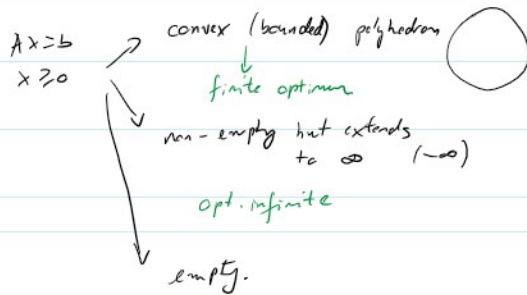 Ax=b
x≥0
convex (bounded) polyhedron
finite optimum
non-empty but extends
to ∞ (-∞)
opt. infinite
empty.